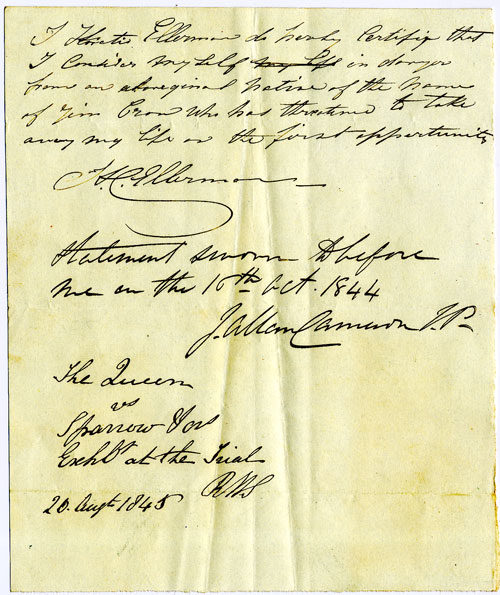 I Horatio Ellerman do hereby Certifiy that
I Consider myself my life in danger
from an aboriginal native of the name
of Jim Crow who has threatened to take
away my life on the first opportunity
H. C. Ellerman
Statement sworn to before
me on the 10th Oct. 1844
J. Allan Cameron J.P.
The Queen
vs
Sparrow & ors
Exhbt at the Trial
20. Augt 1845